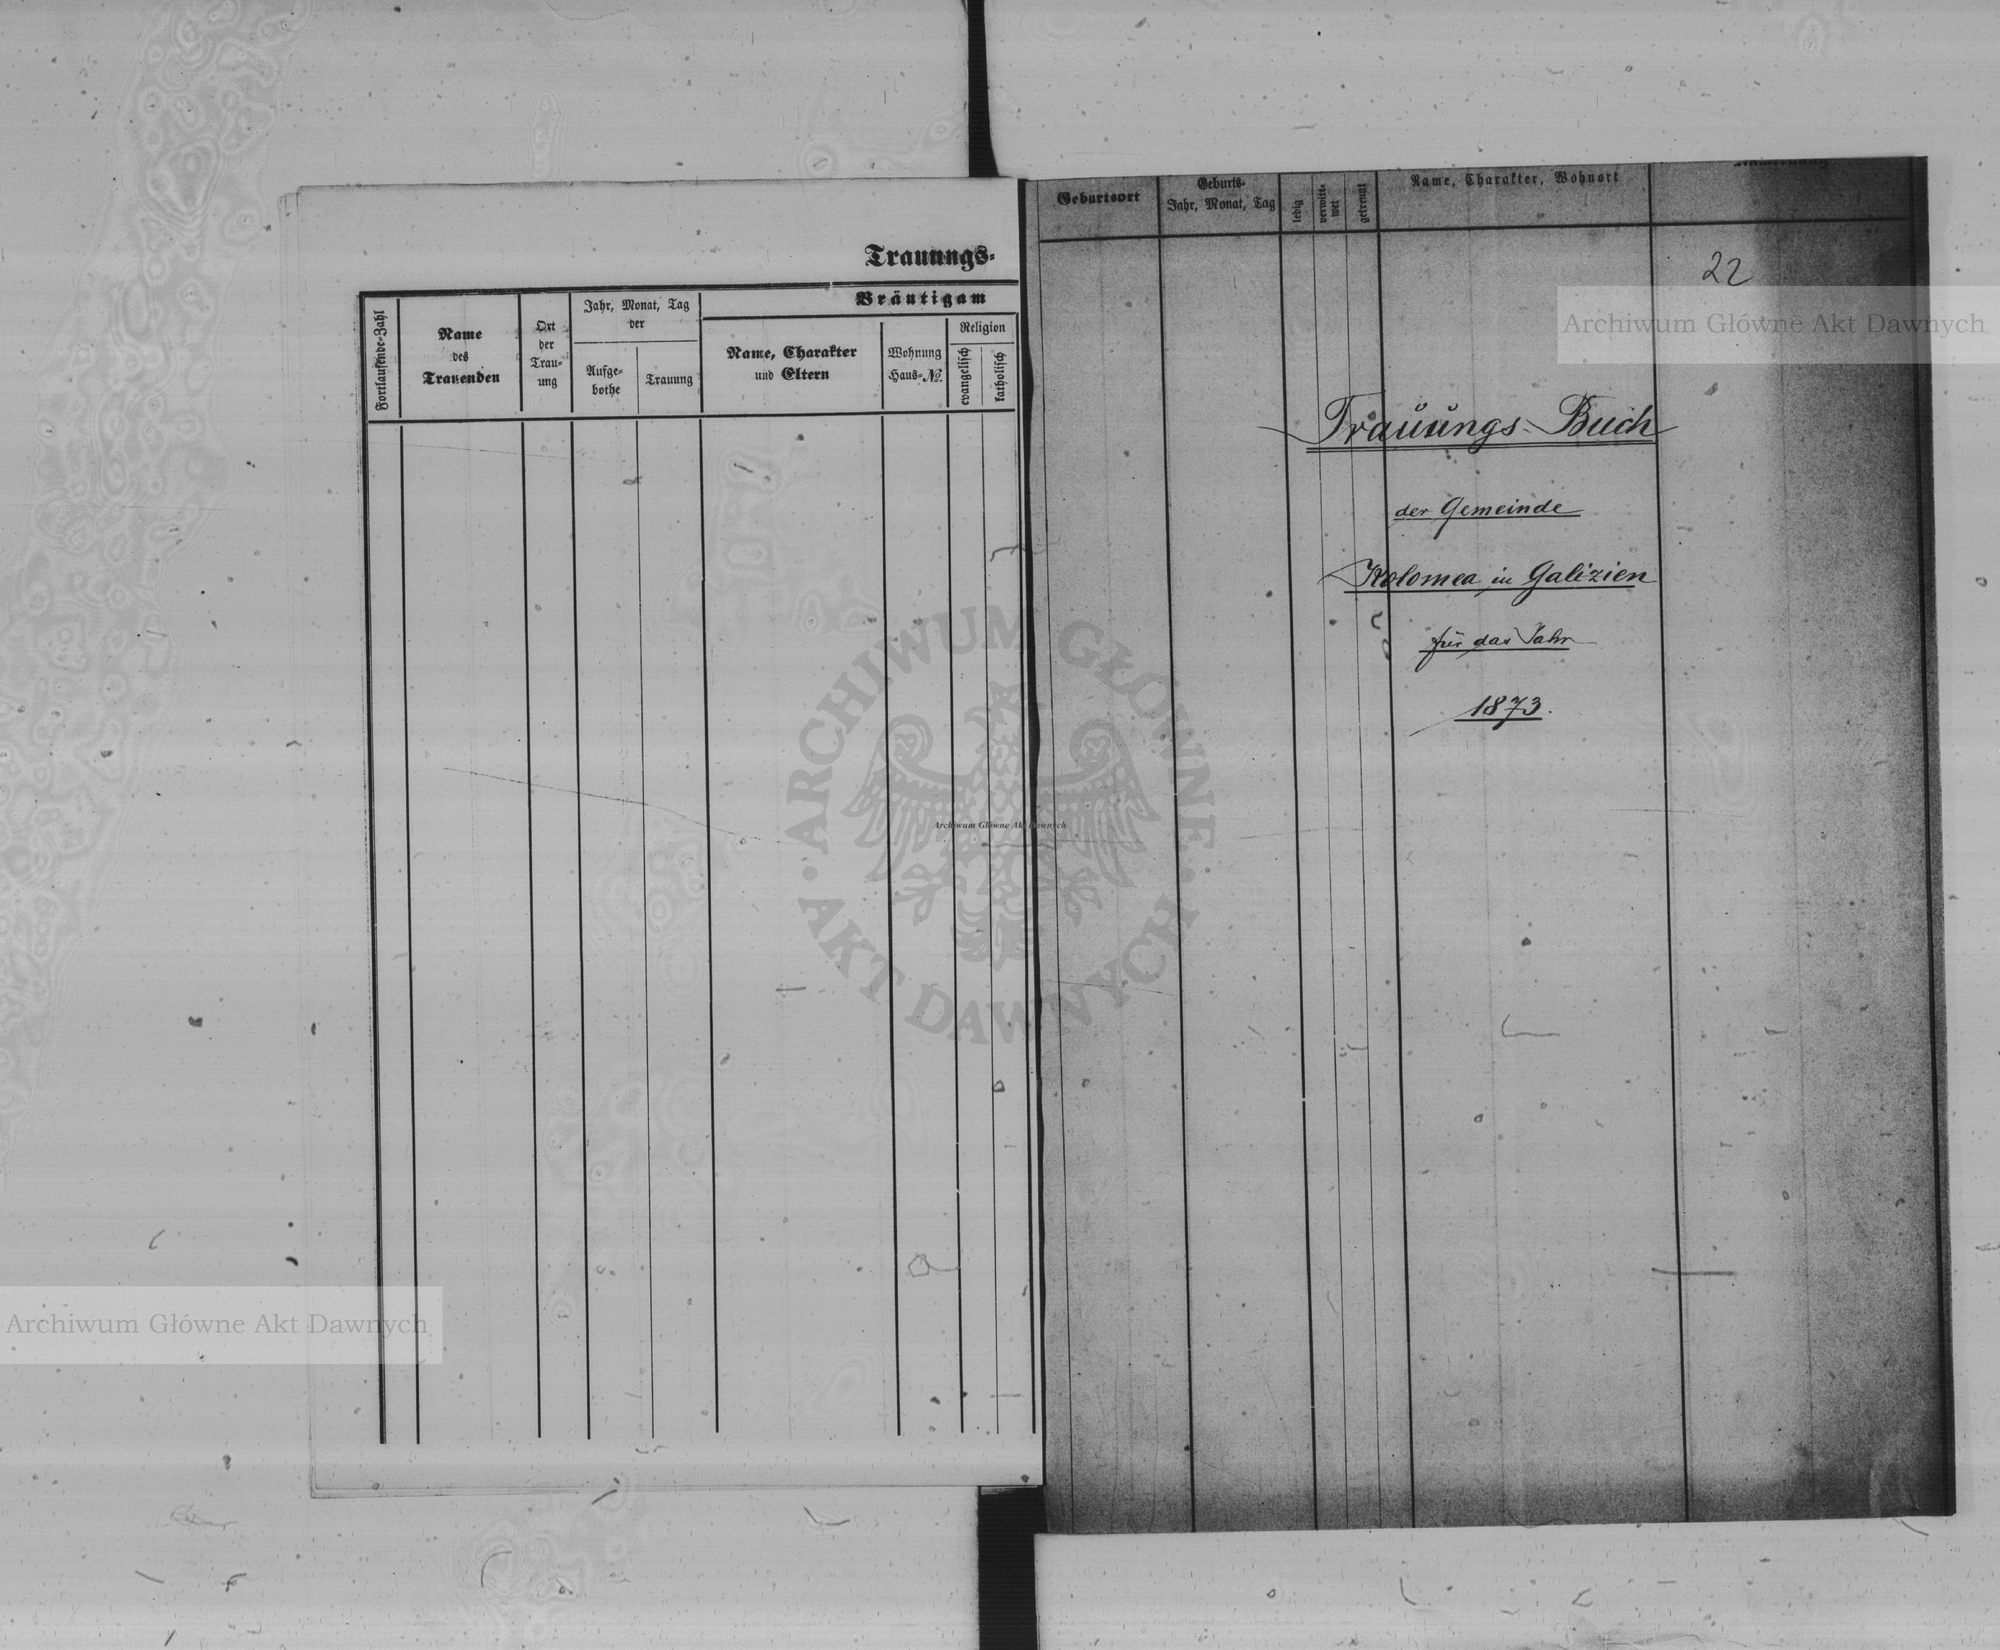 Trauungs-
Bräutigam
Fortlaufende-Zahl
Name
des
Trauenden
Ort
der
Trau-
ung
Jahr, Monat, Tag
der
Aufge-
bothe
Trauung
Name, Charakter
und Eltern
Wohnung
Haus-№.
Religion
evangelisch
katholisch
Geburtsort
Geburts-
Jahr, Monat, Tag
ledig
verwitt-
wet
getrennt
Name, Charakter, Wohnort
22
Trauungs-Buch
der Gemeinde
Kolomea in Galizien
für das Jahr
1873.
Archiwum Główne Akt Dawnych
ARCHIWUM GŁÓWNE
AKT DAWNYCH
Archiwum Główne Akt Dawnych
Archiwum Główne Akt Dawnych